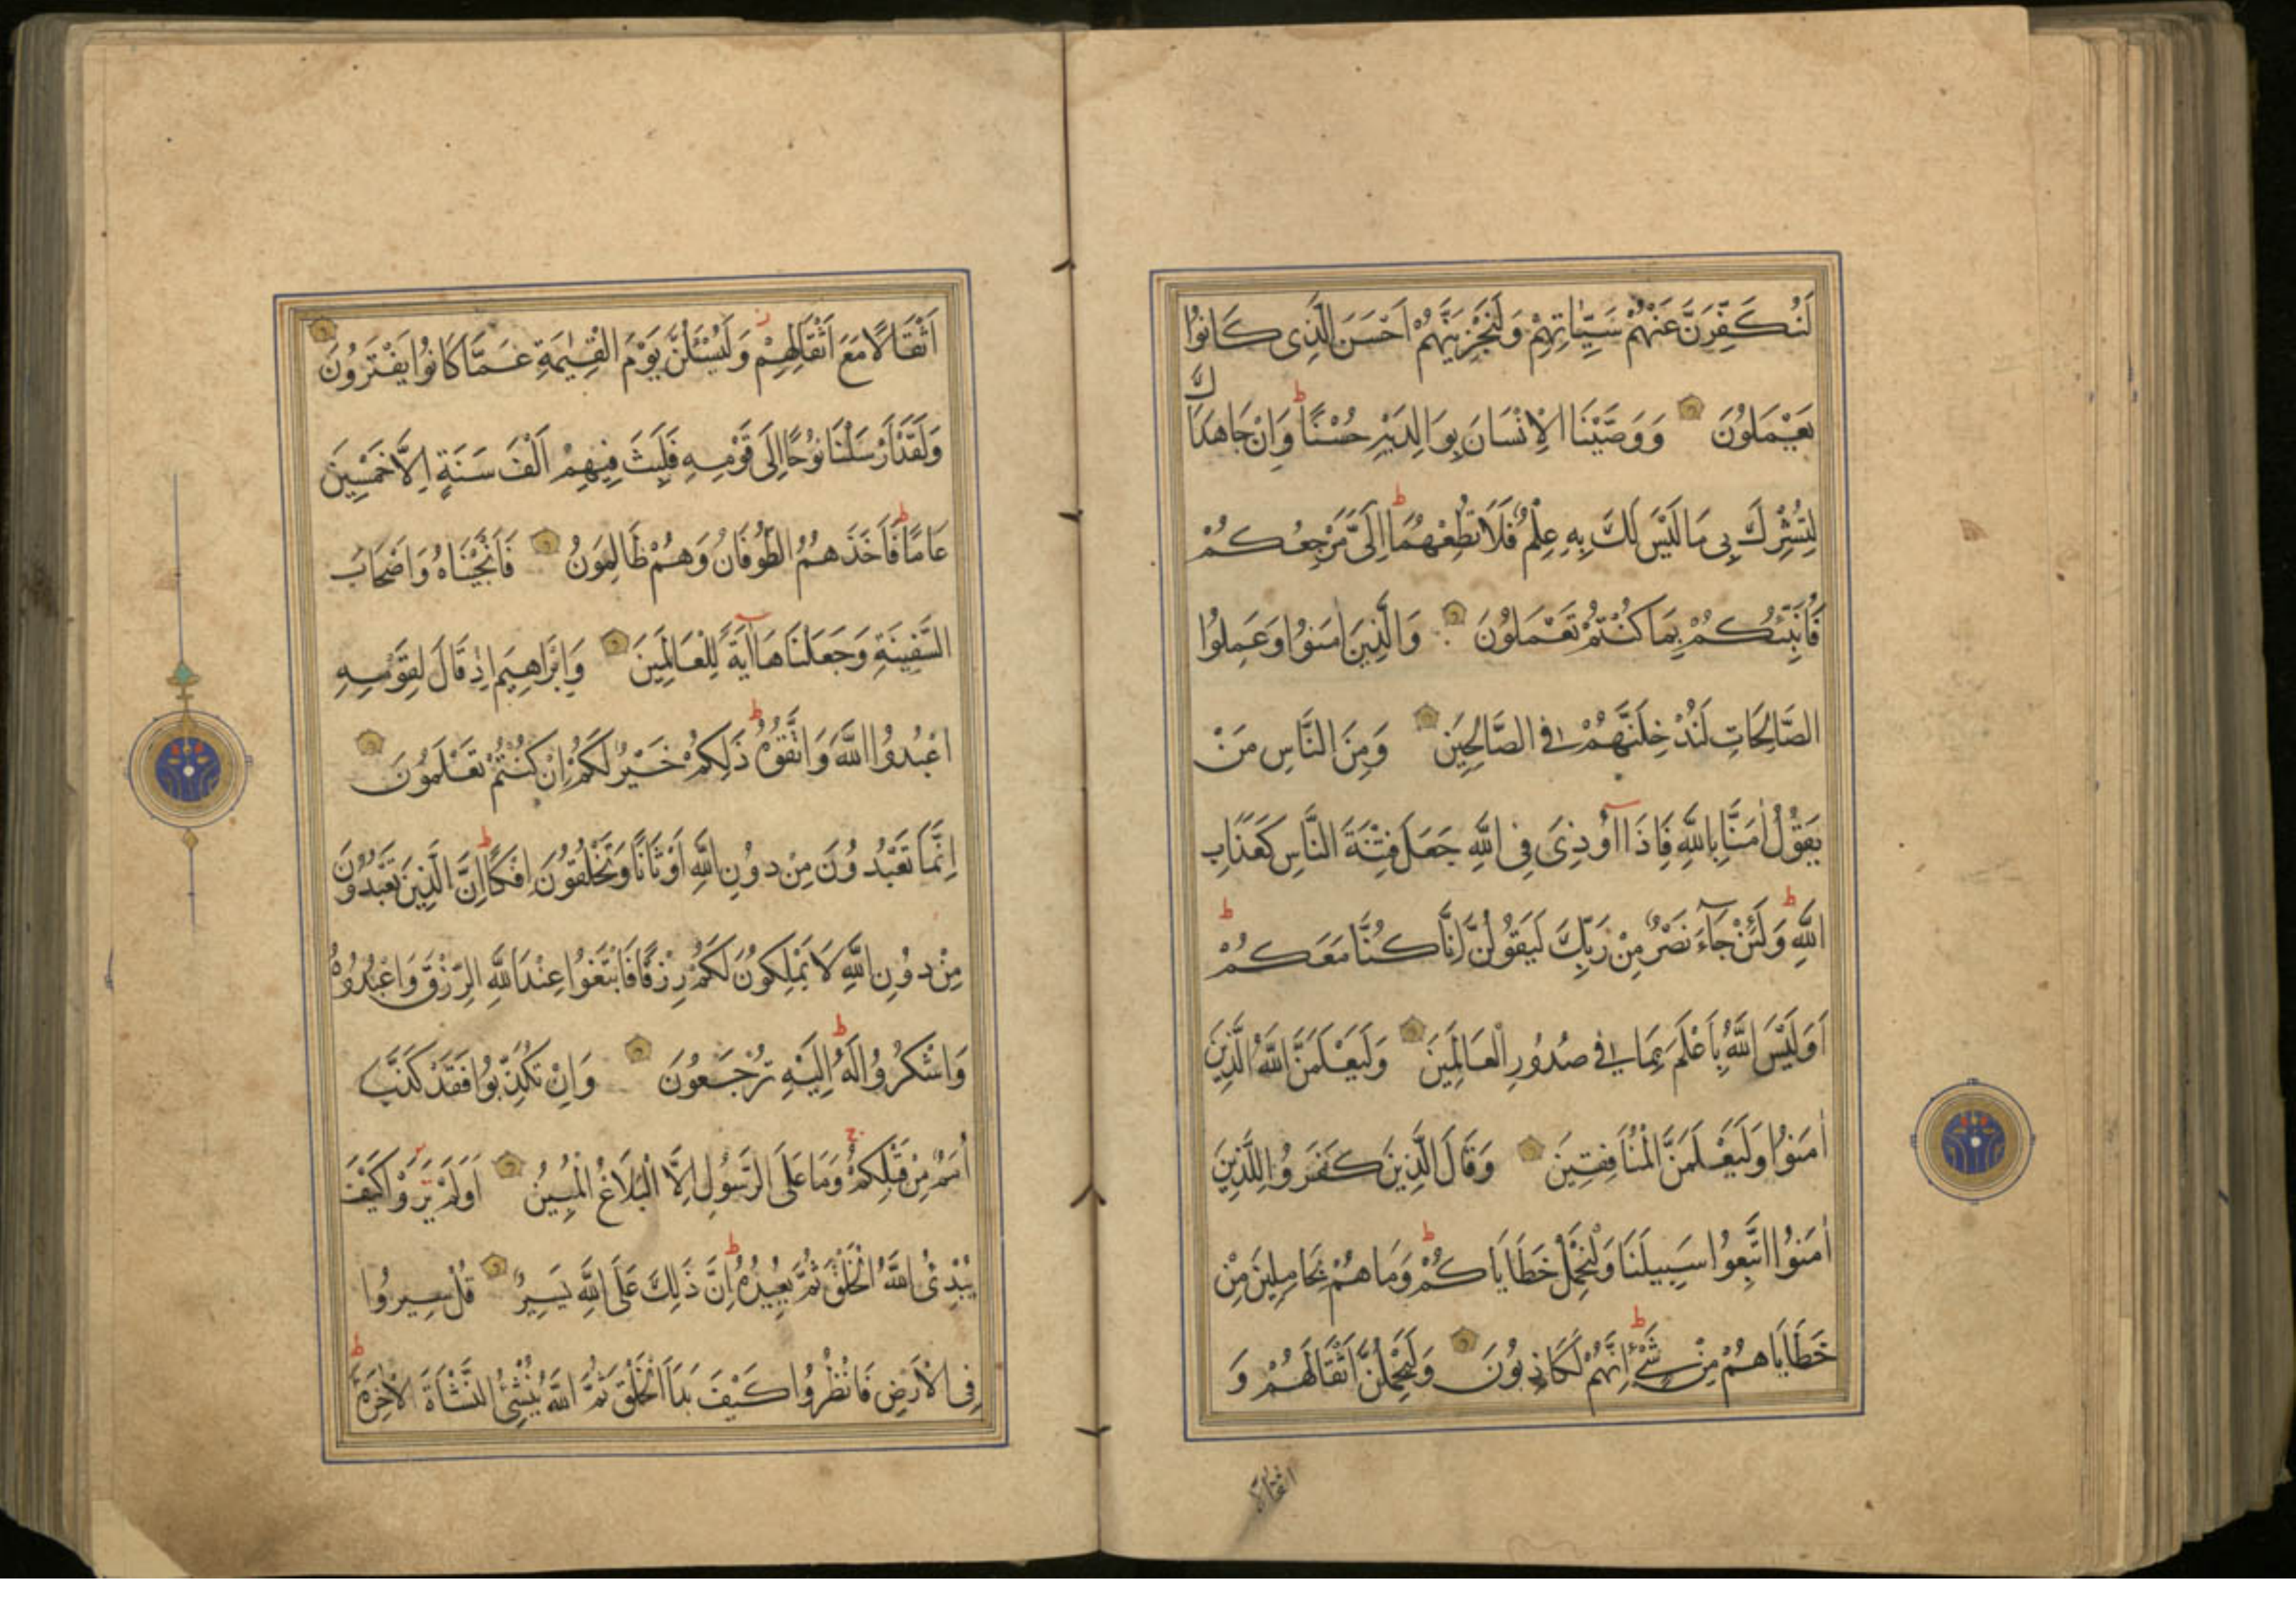 لَنُكَفِّرَنَّ عَنْهُمْ سَيِّاٰتِهِمْ وَلَنَجْزِيَنَّهُمْ اَحْسَنَ الَّذِى كَانُوا
يَعْمَلُونَ وَوَصَّيْنَا الْاِنْسَانَ بِوَالِدَيْهِ حُسْنًا ط وَاِنْ جَاهَدَاكَ
لِتُشْرِكَ بِى مَا لَيْسَ لَكَ بِهِ عِلْمٌ فَلَا تُطِعْهُمَا ط اِلَىَّ مَرْجِعُكُمْ
فَاُنَبِّئُكُمْ بِمَا كُنْتُمْ تَعْمَلُونَ وَالَّذِينَ اٰمَنُوا وَعَمِلُوا
الصَّالِحَاتِ لَنُدْخِلَنَّهُمْ فِى الصَّالِحِينَ وَمِنَ النَّاسِ مَنْ
يَقُولُ اٰمَنَّا بِاللّٰهِ فَاِذَا اُوذِىَ فِى اللّٰهِ جَعَلَ فِتْنَةَ النَّاسِ كَعَذَابِ
اللّٰهِ ط وَلَئِنْ جَآءَ نَصْرٌ مِنْ رَبِّكَ لَيَقُولُنَّ اِنَّا كُنَّا مَعَكُمْ ط
اَوَلَيْسَ اللّٰهُ بِاَعْلَمَ بِمَا فِى صُدُورِ الْعَالَمِينَ وَلَيَعْلَمَنَّ اللّٰهُ الَّذِينَ
اٰمَنُوا وَلَيَعْلَمَنَّ الْمُنَافِقِينَ وَقَالَ الَّذِينَ كَفَرُوا لِلَّذِينَ
اٰمَنُوا اتَّبِعُوا سَبِيلَنَا وَلْنَحْمِلْ خَطَايَاكُمْ ط وَمَا هُمْ بِحَامِلِينَ مِنْ
خَطَايَاهُمْ مِنْ شَىْءٍ ط اِنَّهُمْ لَكَاذِبُونَ وَلَيَحْمِلُنَّ اَثْقَالَهُمْ وَ
اثقالا
اَثْقَالًا مَعَ اَثْقَالِهِمْ ز وَلَيُسْئَلُنَّ يَوْمَ الْقِيٰمَةِ عَمَّا كَانُوا يَفْتَرُونَ
وَلَقَدْ اَرْسَلْنَا نُوحًا اِلَى قَوْمِهِ فَلَبِثَ فِيهِمْ اَلْفَ سَنَةٍ اِلَّا خَمْسِينَ
عَامًا ط فَاَخَذَهُمُ الطُّوفَانُ وَهُمْ ظَالِمُونَ فَاَنْجَيْنَاهُ وَاَصْحَابَ
السَّفِينَةِ وَجَعَلْنَاهَا آيَةً لِلْعَالَمِينَ وَاِبْرَاهِيمَ اِذْ قَالَ لِقَوْمِهِ
اعْبُدُوا اللّٰهَ وَاتَّقُوهُ ط ذَلِكُمْ خَيْرٌ لَكُمْ اِنْ كُنْتُمْ تَعْلَمُونَ
اِنَّمَا تَعْبُدُونَ مِنْ دُونِ اللّٰهِ اَوْثَانًا وَتَخْلُقُونَ اِفْكًا ط اِنَّ الَّذِينَ تَعْبُدُونَ
مِنْ دُونِ اللّٰهِ لَا يَمْلِكُونَ لَكُمْ رِزْقًا فَابْتَغُوا عِنْدَ اللّٰهِ الرِّزْقَ وَاعْبُدُوهُ
وَاشْكُرُوا لَهُ ط اِلَيْهِ تُرْجَعُونَ وَاِنْ تُكَذِّبُوا فَقَدْ كَذَّبَ
اُمَمٌ مِنْ قَبْلِكُمْ ج وَمَا عَلَى الرَّسُولِ اِلَّا الْبَلَاغُ الْمُبِينُ اَوَلَمْ يَرَوْا كَيْفَ
يُبْدِئُ اللّٰهُ الْخَلْقَ ثُمَّ يُعِيدُهُ ط اِنَّ ذَلِكَ عَلَى اللّٰهِ يَسِيرٌ قُلْ سِيرُوا
فِى الْاَرْضِ فَانْظُرُوا كَيْفَ بَدَاَ الْخَلْقَ ثُمَّ اللّٰهُ يُنْشِئُ النَّشْاَةَ الْاٰخِرَةَ ط